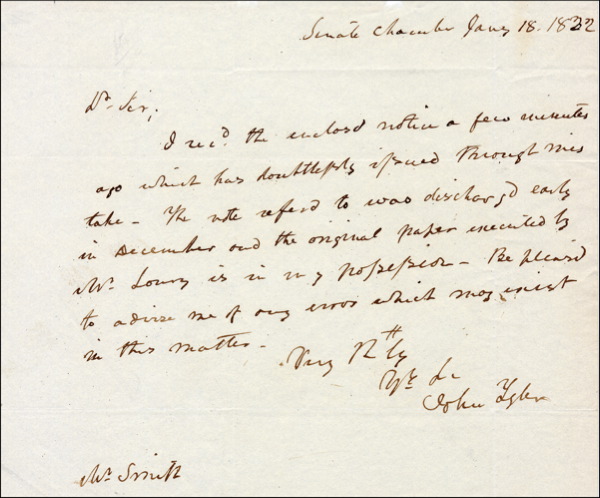 Senate Chamber Jany 18. 1832
Dr Sir;
I recd the enclosd notice a few minutes
ago which has doubtlessly issued through mis
take - The note referd to was dischargd early
in December and the original paper executed by
Mr. Lowry is in my possession - Be pleasd
to advise me of any error which may exist
in this matter -
Very Rtfly
Yr Se
John Tyler
Mr Smith